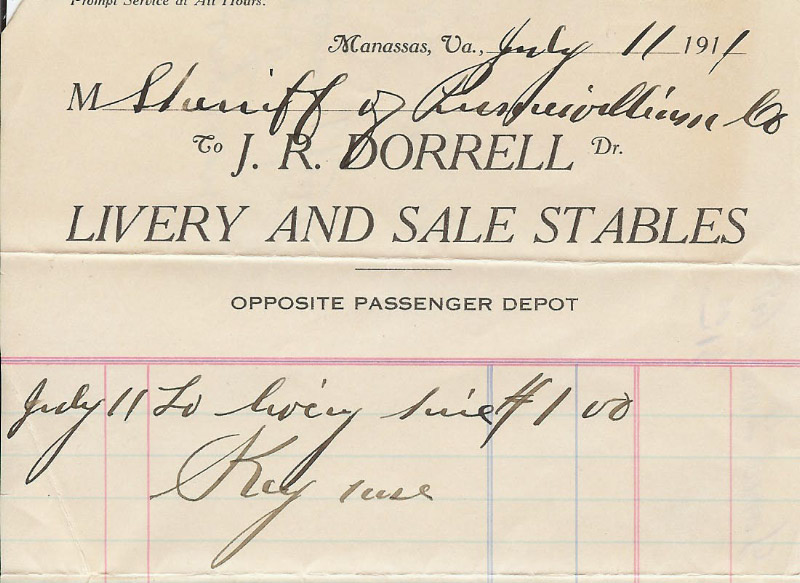 Prompt Service at All Hours.
Manassas, Va., July 11 1911
M Sheriff of Princewilliam Co
To J. R. DORRELL Dr.
LIVERY AND SALE STABLES
OPPOSITE PASSENGER DEPOT
July 11 To livery hire $1 00
Key